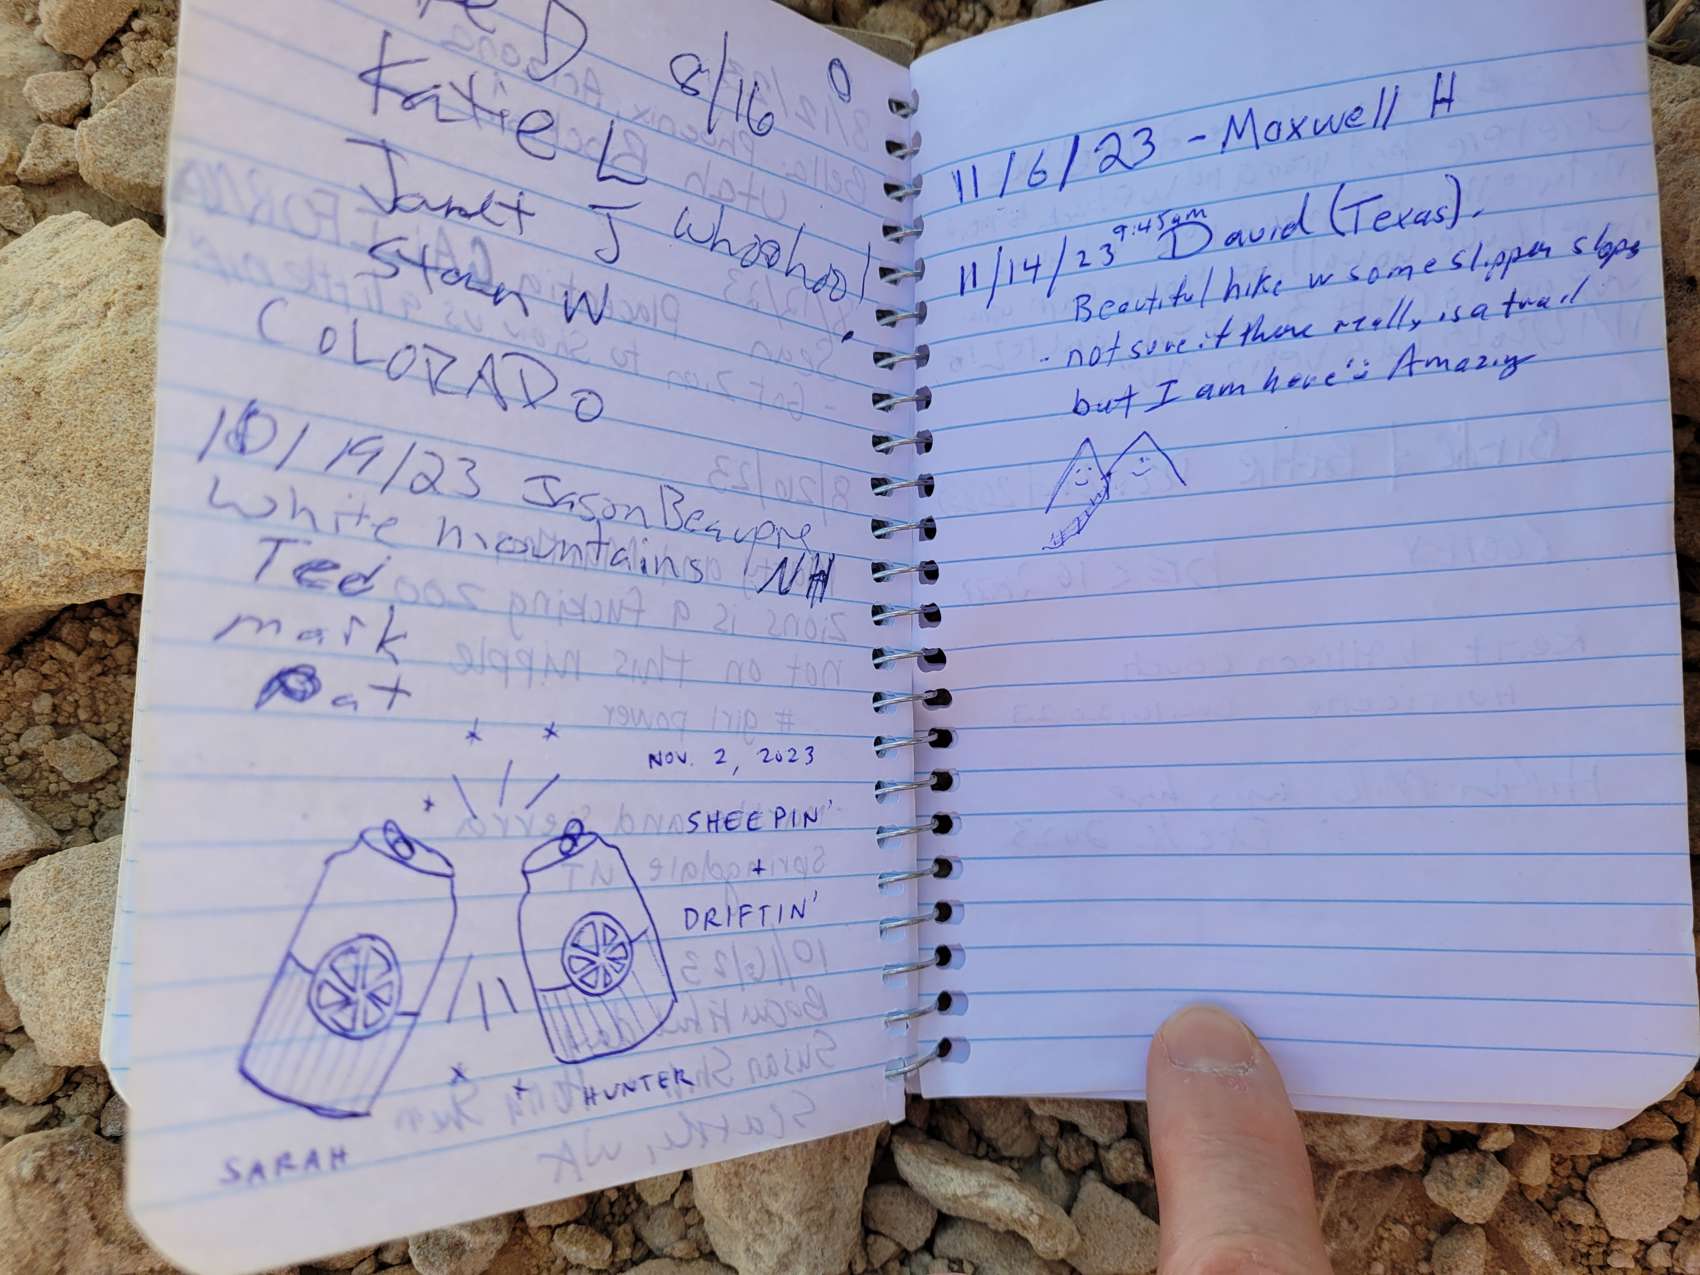 D 8/16
Katie L
Janet J whoohoo!
Stan W
COLORADO
10/19/23 Jason Beaupre
White mountains NH
Ted
mark
Pat
NOV. 2, 2023
SHEEPIN'
+
DRIFTIN'
HUNTER
SARAH
11/6/23 - Maxwell H
11/14/23 9:45am David (Texas).
Beautiful hike w some slippen slops
- not sure if there really is a trail
but I am here Amazing